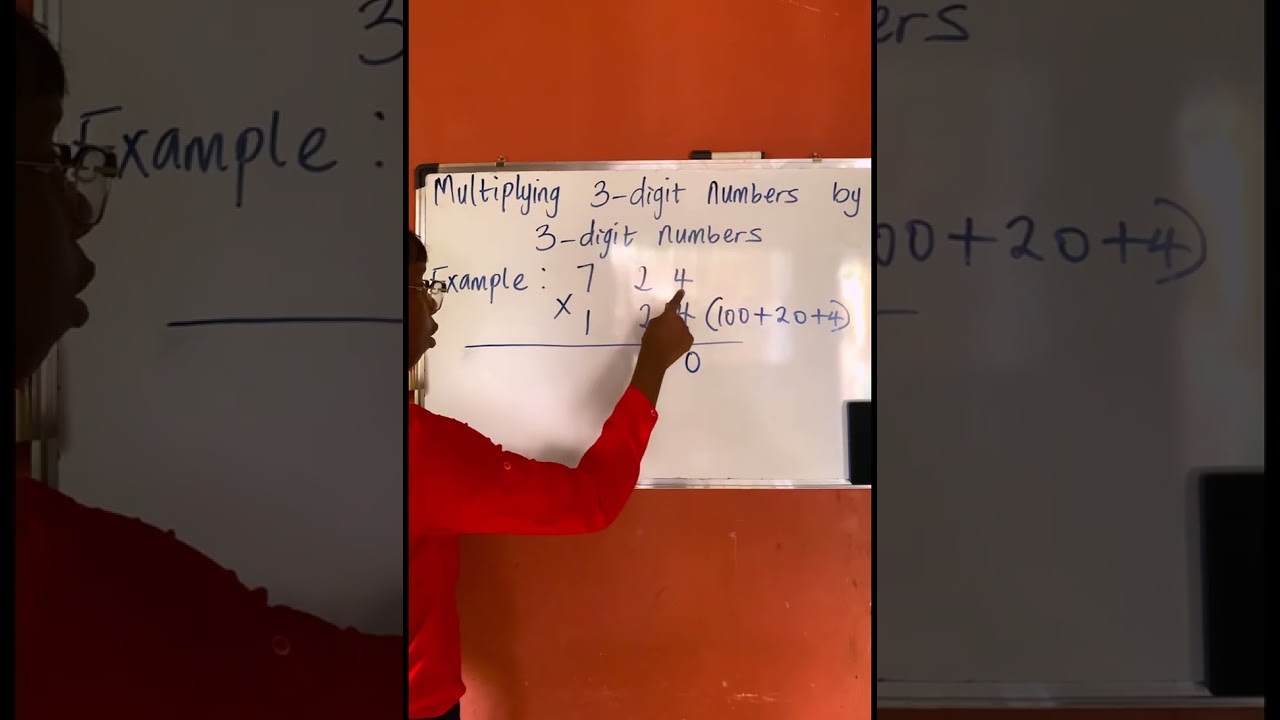 Multiplying 3-digit numbers by
3-digit numbers
Example: 7 2 4
x 1 2 4 (100+20+4)
0